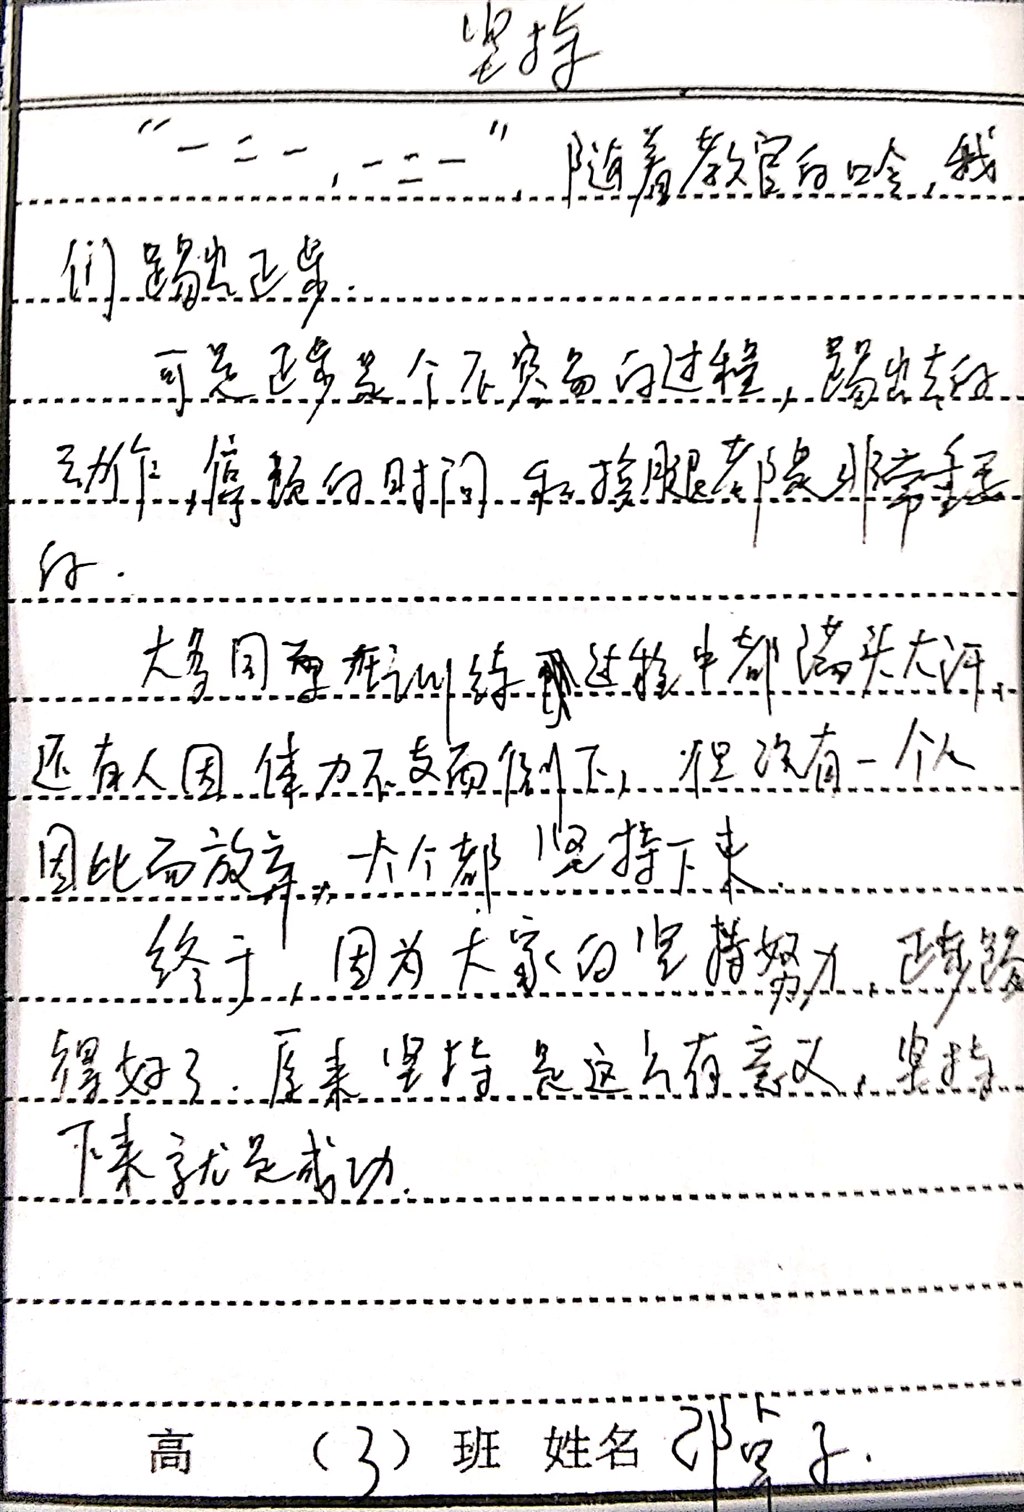 坚持
“一二一，一二一”，随着教官的口令，我
们踢出正步．
可是正步是个不容易的过程，踢出去的
动作，停顿的时间和换腿都是非常重要
的．
大多同学在训练过程中都满头大汗，
还有人因体力不支而倒下，但没有一个人
因此而放弃，个个都坚持下来．
终于，因为大家的坚持努力，正步踢
得好了．原来坚持是这么有意义，坚持
下来就是成功．
高 （3）班 姓名 邓卓子．